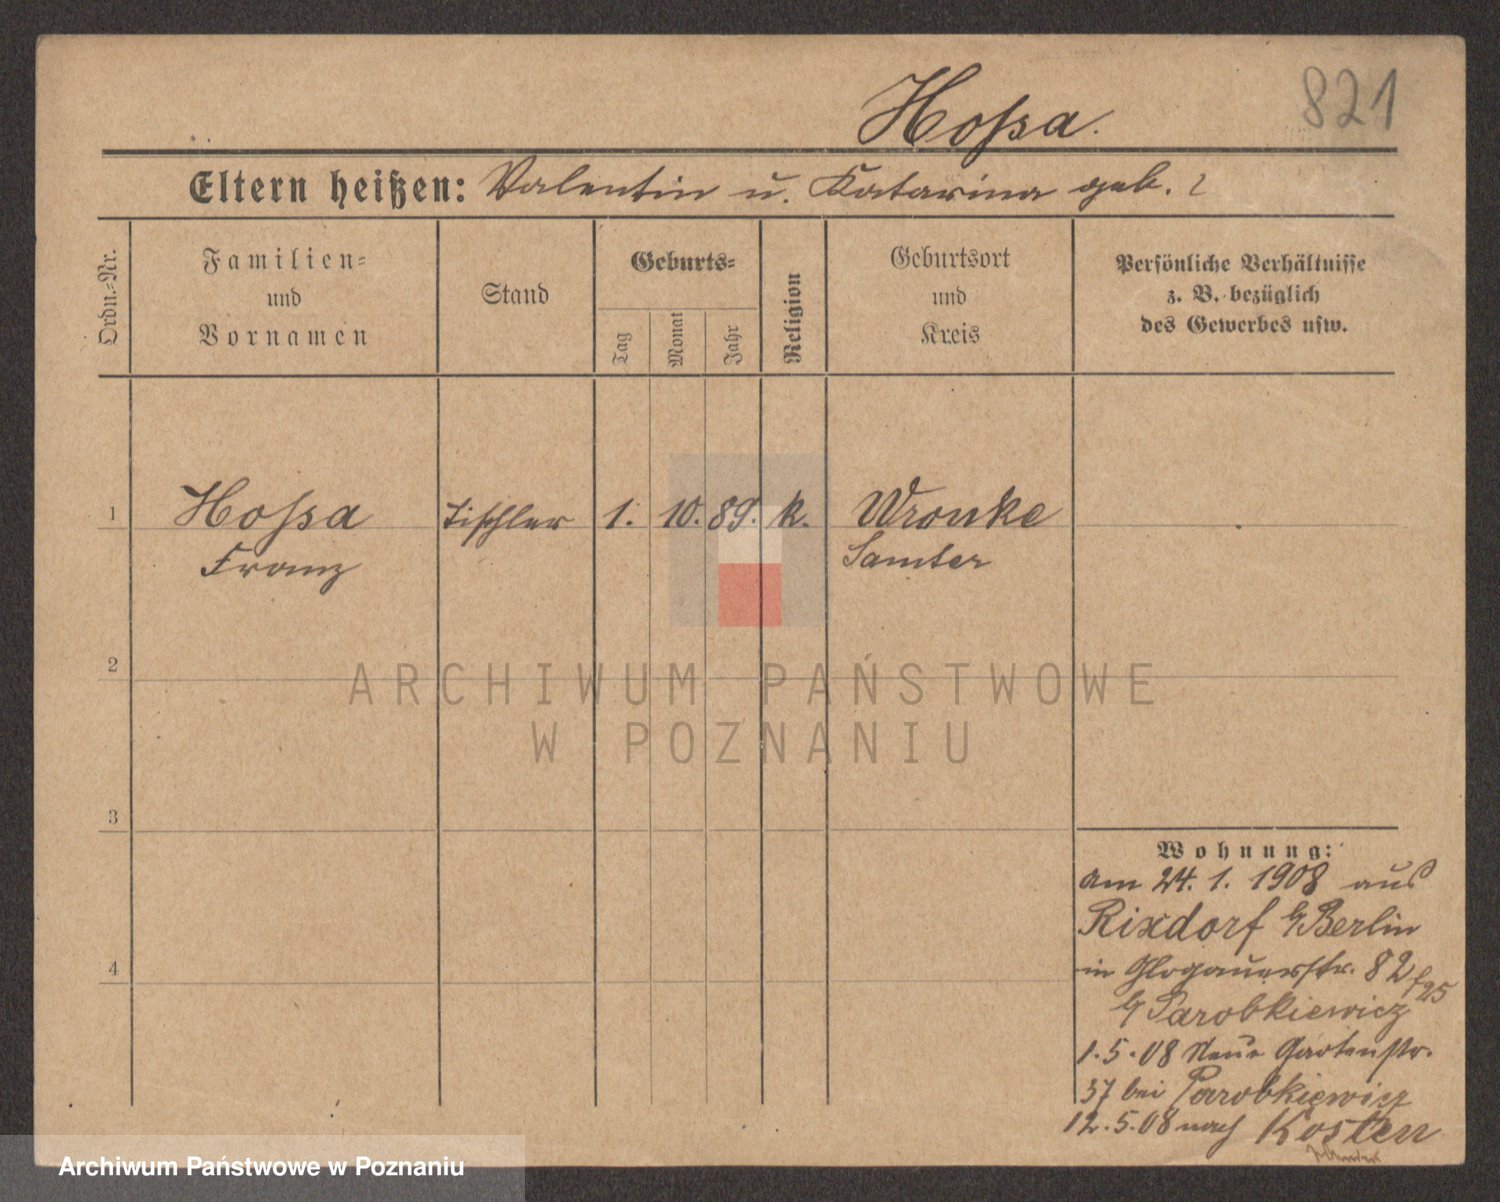 Hoſsa.
821
Eltern heißen: Valentin u. Katarina geb. ?
Ordn.-Nr.
Familien-
und
Vornamen
Stand
Geburts-
Tag
Monat
Jahr
Religion
Geburtsort
und
Kreis
Persönliche Verhältnisse
z. B. bezüglich
des Gewerbes usw.
1 Hoſsa Tischler 1. 10. 89. k. Wronke
Franz Samter
2
3
4
Wohnung:
am 24. 1. 1908 aus
Rixdorf b/Berlin
in Glogauerstr. 82
b/ Parobkiewicz
1.5.08 Neue Gartenstr.
37 bei Parobkiewicz
12.5.08 nach Kosten
ARCHIWUM PAŃSTWOWE
W POZNANIU
Archiwum Państwowe w Poznaniu